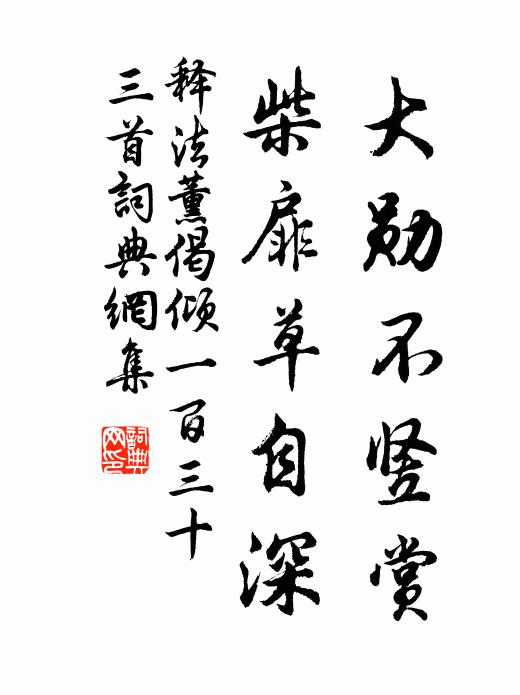 大勋不竖赏
柴扉草自深
释法薰偈倾一百三十
三首詞典網集
詞典
网印